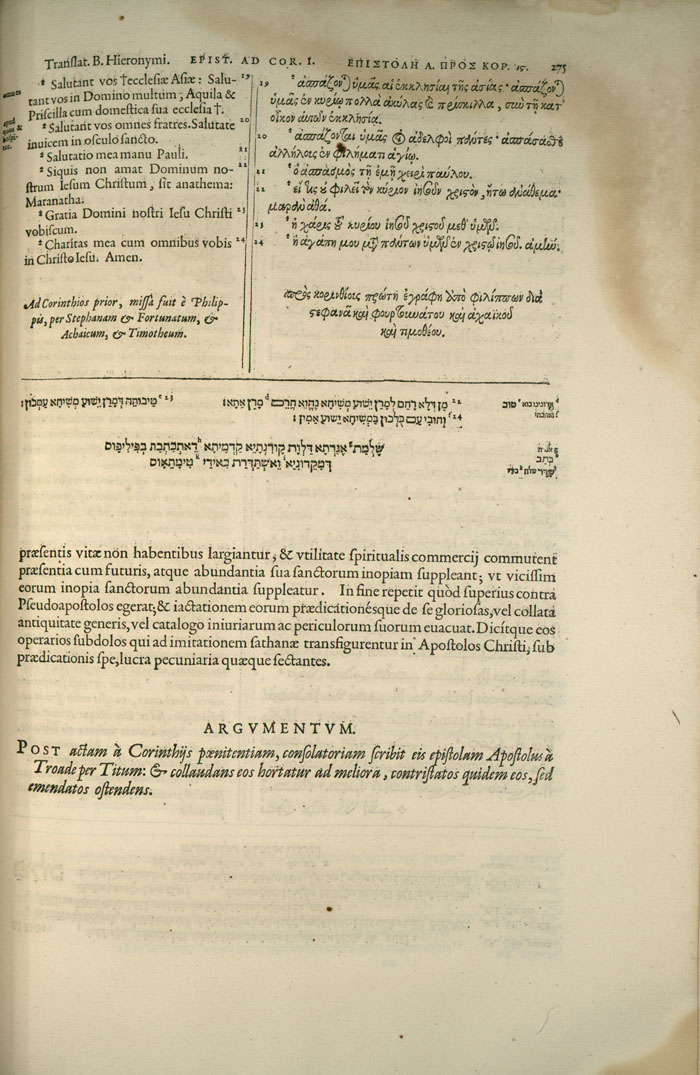 Translat. B. Hieronymi. EPIST. AD COR. I. ΕΠΙΣΤΟΛΗ Α. ΠΡΟΣ ΚΟΡ. 15. 275
ᵃ Salutant vos †ecclesiæ Asiæ: Salu- 19
tant vos in Domino multum, Aquila &
Priscilla cum domestica sua ecclesia †.
ᵃ Salutant vos omnes fratres. Salutate 20
inuicem in osculo sancto.
ᵃ Salutatio mea manu Pauli. 21
ᵃ Siquis non amat Dominum no- 22
strum Iesum Christum, sit anathema:
Maranatha.
ᵃ Gratia Domini nostri Iesu Christi 23
vobiscum.
ᵃ Charitas mea cum omnibus vobis 24
in Christo Iesu. Amen.
Ad Corinthios prior, missa fuit è Philip-
pis, per Stephanam & Fortunatum, &
Achaicum, & Timotheum.
19 ἀσπάζονται ὑμᾶς αἱ ἐκκλησίαι τῆς ἀσίας· ἀσπάζονται
ὑμᾶς ἐν κυρίῳ πολλὰ ἀκύλας καὶ πρίσκιλλα, σὺν τῇ κατ'
οἶκον αὐτῶν ἐκκλησίᾳ.
20 ἀσπάζονται ὑμᾶς οἱ ἀδελφοὶ πάντες· ἀσπάσασθε
ἀλλήλοις ἐν φιλήματι ἁγίῳ.
21 ὁ ἀσπασμὸς τῇ ἐμῇ χειρὶ παύλου.
22 εἴ τις οὐ φιλεῖ τὸν κύριον ἰησοῦν χριστὸν, ἤτω ἀνάθεμα·
μαρὰν ἀθά.
23 ἡ χάρις τοῦ κυρίου ἰησοῦ χριστοῦ μεθ' ὑμῶν.
24 ἡ ἀγάπη μου μετὰ πάντων ὑμῶν ἐν χριστῷ ἰησοῦ. ἀμήν.
πρὸς κορινθίους πρώτη ἐγράφη ἀπὸ φιλίππων διὰ
στεφανᾶ καὶ φουρτουνάτου καὶ ἀχαϊκοῦ
καὶ τιμοθέου.
22 מַן דְּלָא רָחֵם לְמָרַן יֵשׁוּע מְשִׁיחָא נֶהְוֵא חֲרֵם ᵈ מָרַן אֶתָא: 23 טַיבּוּתֵהּ דְּמָרַן יֵשׁוּע מְשִׁיחָא עַמְכוֹן:
24 וְחוּבִּי עַם כֻּלְּכוֹן בַּמְשִׁיחָא יֵשׁוּע אַמִין:
שֶׁלְמַת אִגַּרְתָּא דַּלְוָת קוּרִנְתָיֵא קַדְמָיתָא דְּאֶתְכַּתְבַת בְּפִילִיפוֹס
דְּמַקֶדּוֹנִיַא וְאֶשְׁתַּדְּרַת בִּאִידַי טִימָתֵאוֹס
præsentis vitæ non habentibus largiantur, & vtilitate spiritualis commercij commutent
præsentia cum futuris, atque abundantia sua sanctorum inopiam suppleant; vt vicissim
eorum inopia sanctorum abundantia suppleatur. In fine repetit quòd superius contra
Pseudoapostolos egerat; & iactationem eorum prædicationésque de se gloriosas, vel collata
antiquitate generis, vel catalogo iniuriarum ac periculorum suorum euacuat. Dicítque eos
operarios subdolos qui ad imitationem sathanæ transfigurentur in Apostolos Christi, sub
prædicationis spe, lucra pecuniaria quæque sectantes.
ARGVMENTVM.
POST actam à Corinthijs pœnitentiam, consolatoriam scribit eis epistolam Apostolus à
Troade per Titum: & collaudans eos hortatur ad meliora, contristatos quidem eos, sed
emendatos ostendens.